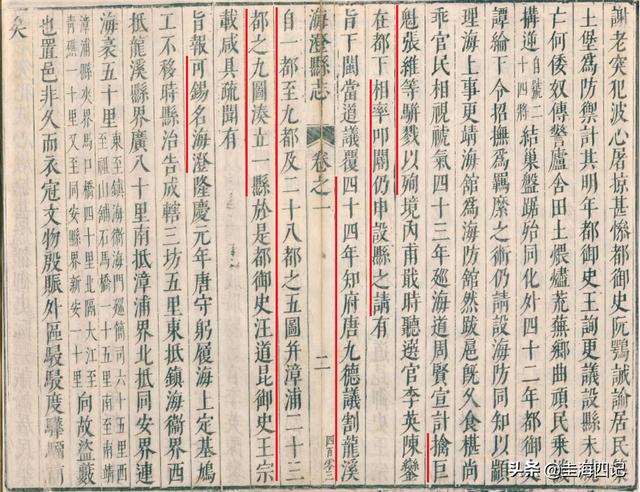 謝老突犯波心居甚慘都御史阮鶚誠諭居民築
土堡為防禦計其明年都御史王詢更議設縣未
亡何倭奴傳警廬舍田土煨燼荒蕪鄉曲頑民乘
構逆自號二十四將結巢盤踞殆同化外四十二年都御
譚綸下令招撫為羈縻之術仍請設海防同知以顓
理海上事更靖海館為海防館然跋扈既久食椹尚
乖官民相視虓氣四十三年廵海道周賢宣計擒巨
魁張維等駢戮以殉境内甫戢時聽選官李英陳鑾
在都下相率叩閽仍申設縣之請有
旨下閩當道議覆四十四年知府唐九德議割龍溪
海澄縣志 卷之一 二 四百零三
自一都至九都及二十八都之五圖并漳浦二十三
都之九圖湊立一縣於是都御史汪道昆御史王宗
載咸具疏聞有
旨報可錫名海澄隆慶元年唐守躬履海上定基鳩
工不移時縣治告成轄三坊五里東抵鎮海衛界西
抵龍溪縣界廣八十里南抵漳浦界北抵同安界連
海袤五十里東至鎮海衛海門廵簡司六十五里西至福山鋪石馬橋一十五里南至南靖
漳浦縣夾界馬口橋四十里北隔大江至青礁一十里又至同安縣界新安一十里向故盜藪
也置邑非久而衣冠文物殷賑外區駸駸度驊騮前
矣
头条 @圭海四记